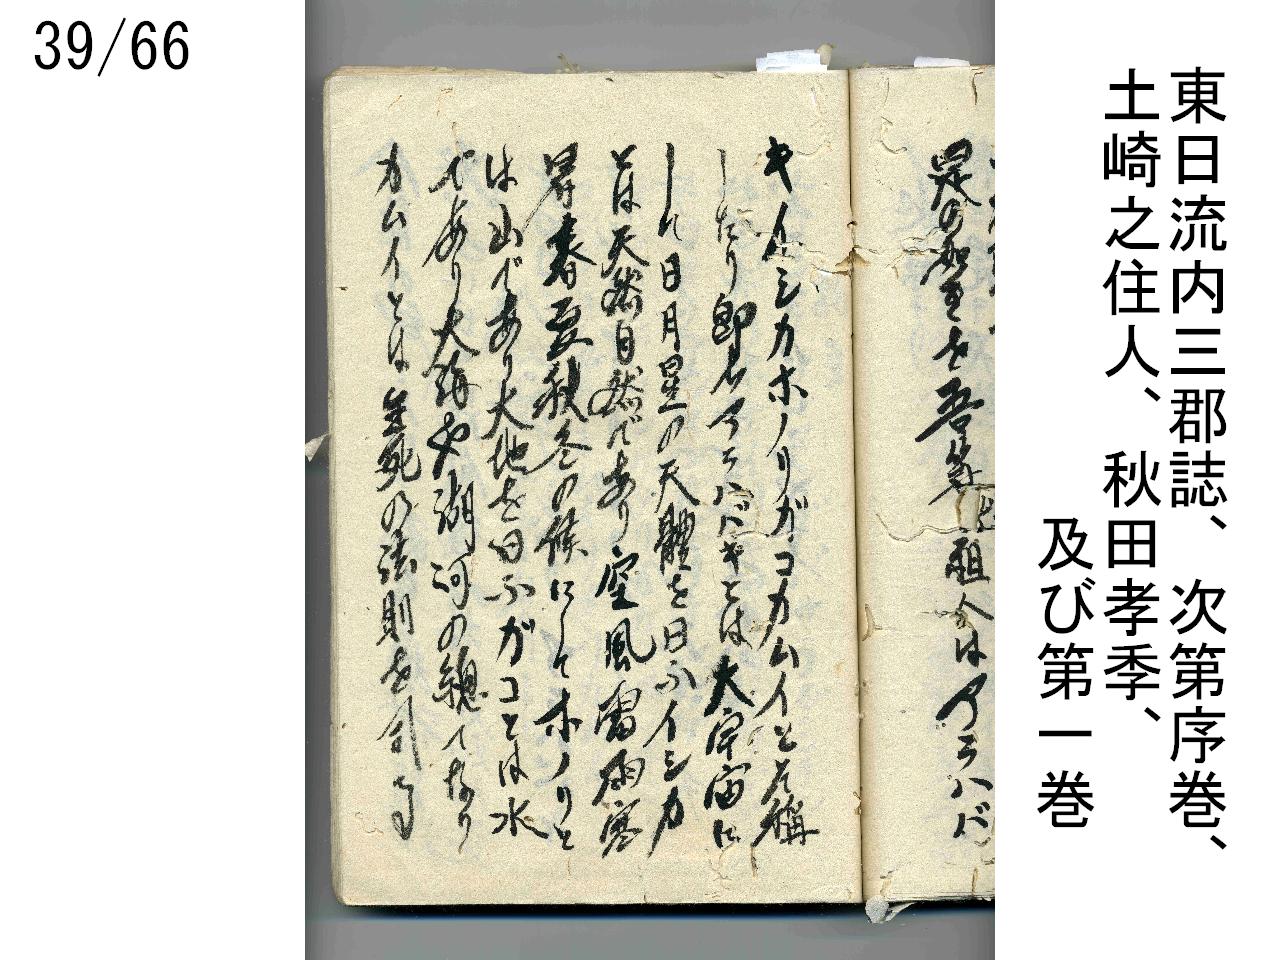 39/66
東日流内三郡誌、次第序巻、
土崎之住人、秋田孝季、
及び第一巻
是の如きを吾等
祖人はアラハバ
キイシカホノリガコカムイとぞ稱
したり即ちアラハバキとは大宇宙に
して日月星の天體を曰ふイシカ
とは天然自然であり空風雷雨寒
暑春夏秋冬の候にしてホノリと
は山であり大地を曰ふガコとは水
であり大海や湖河の總てなり
カムイとは生死の法則を司る